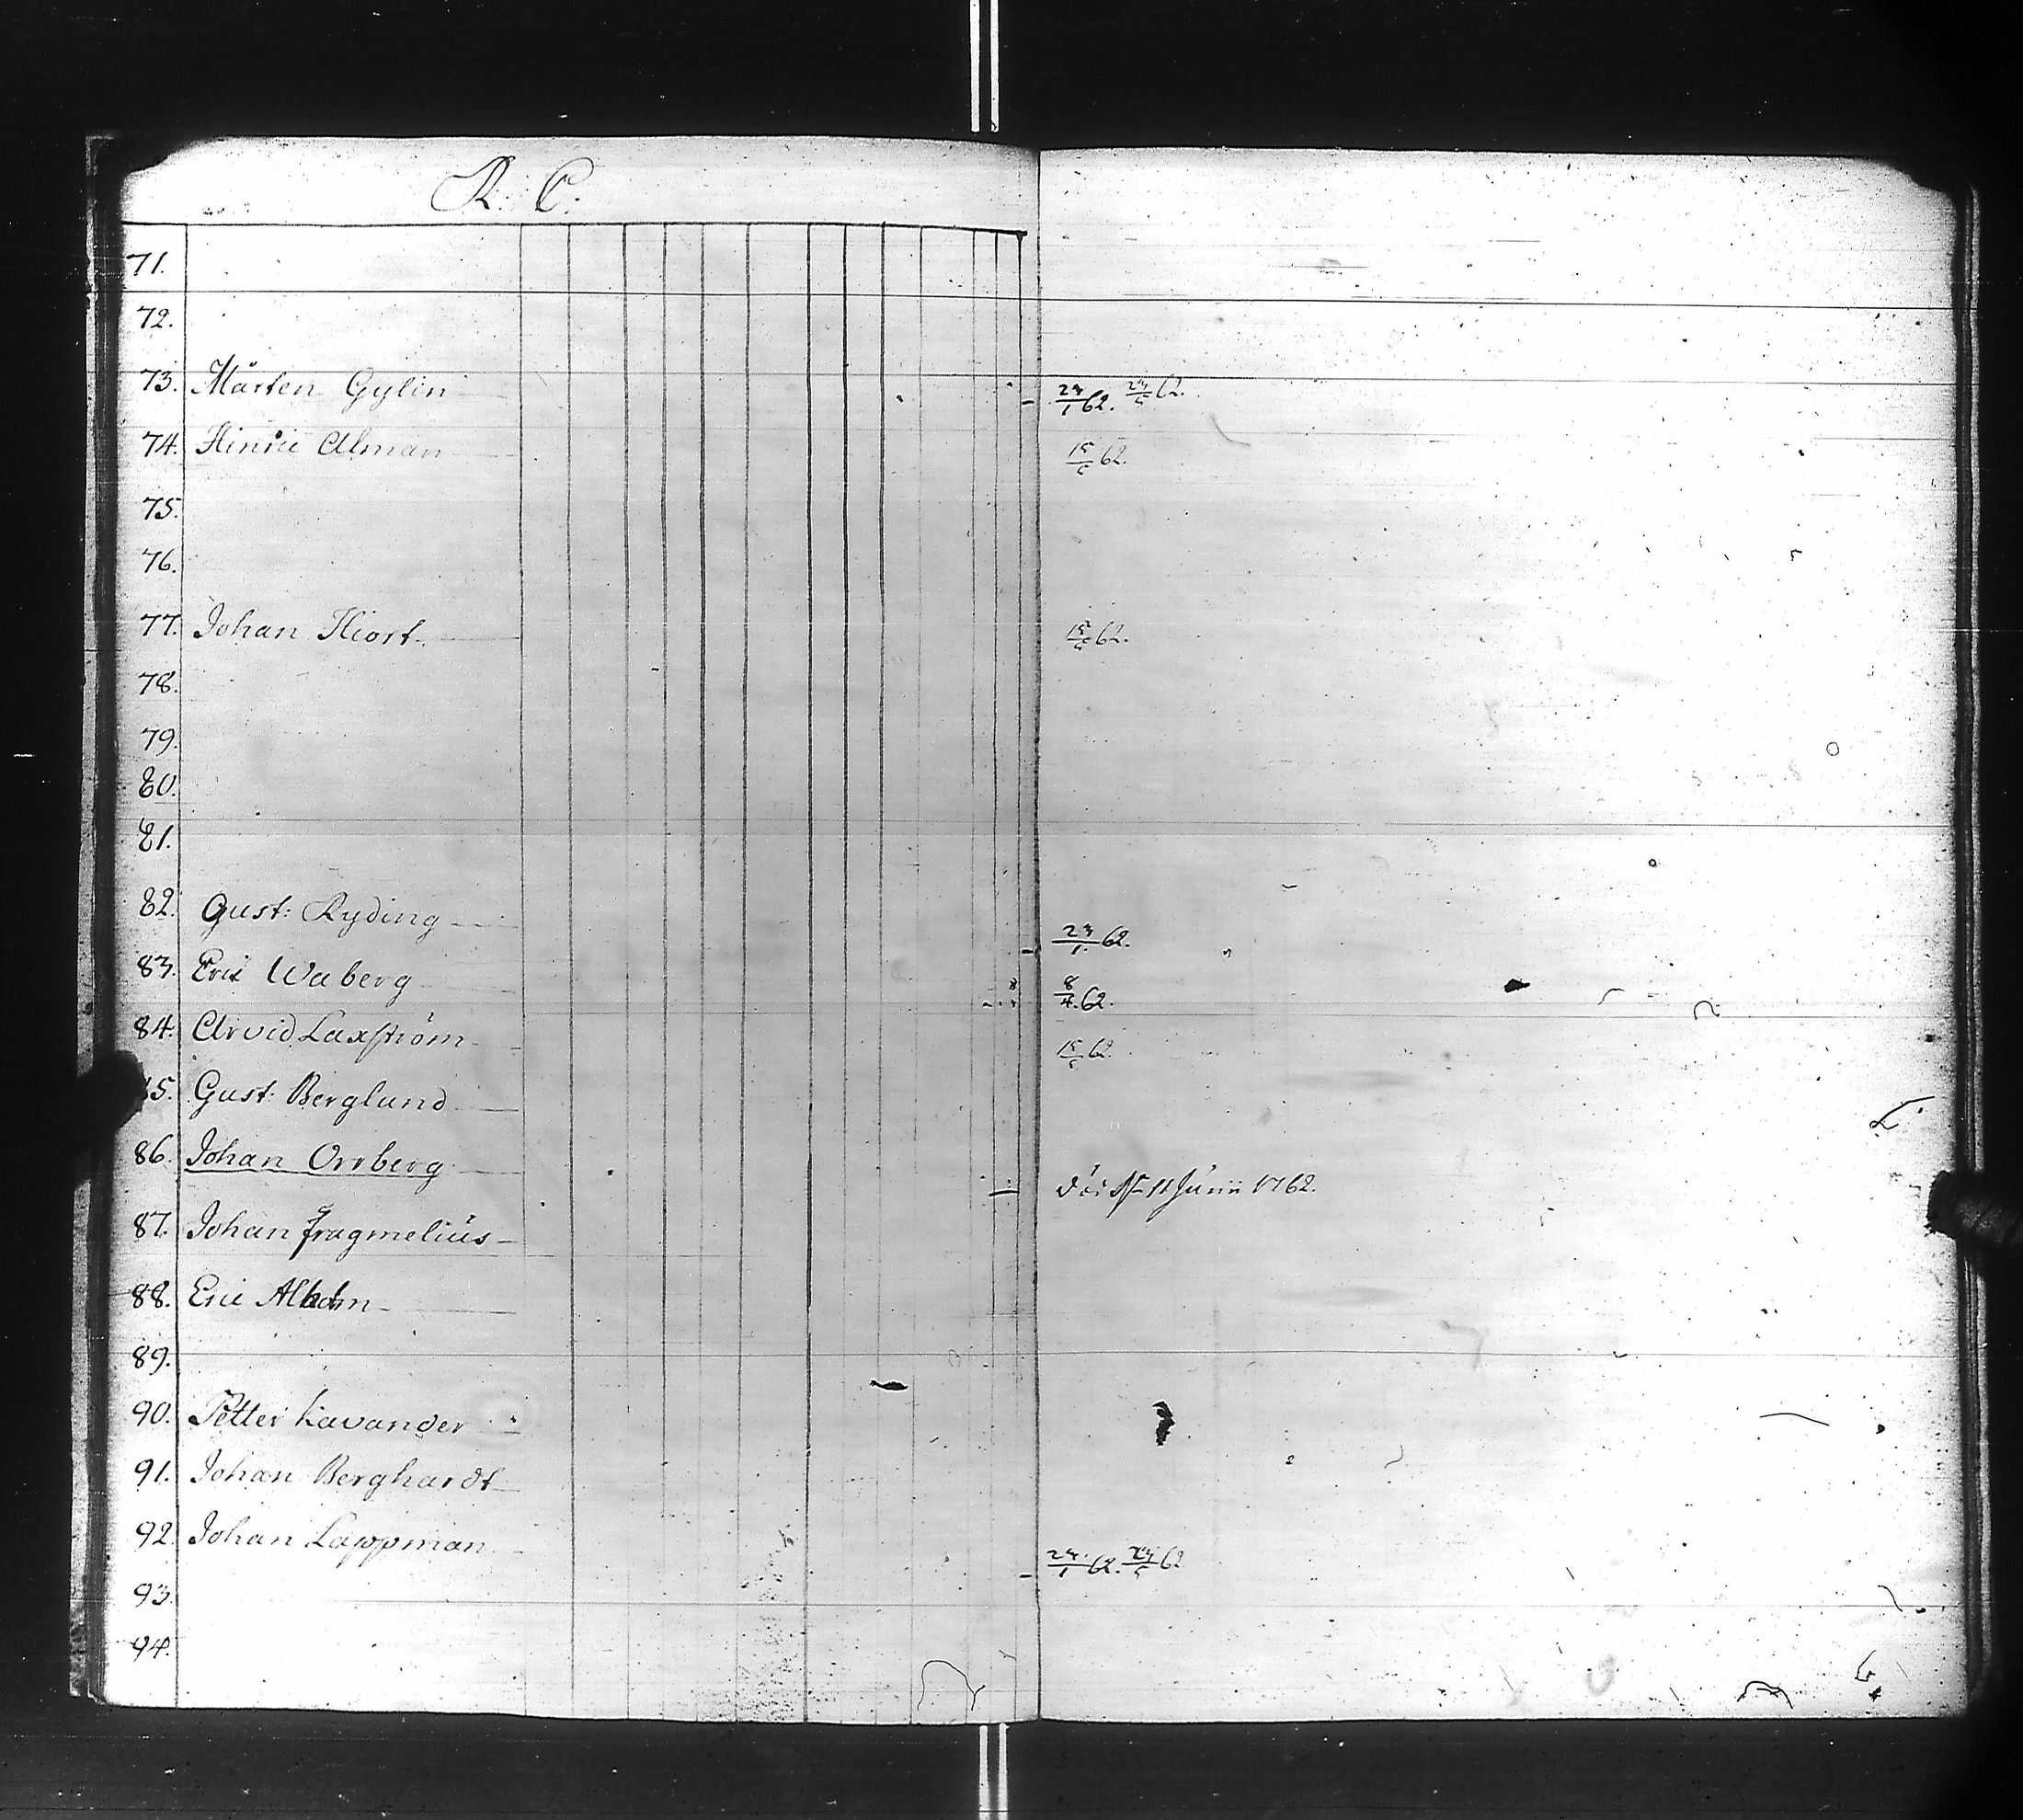 R. C.
71.
72.
73. Mårten Gylin 24/1 62. 24/5 62.
74. Hinric Alman 15/5 62.
75.
76.
77. Johan Hiort 15/5 62.
78.
79.
80.
81.
82. Gust: Ryding 23/1. 62.
83. Eric Waberg 8/4. 62.
84. Arvid Laxström 15/5 62.
85. Gust: Berglund
86. Johan Orrberg 11 Junii 1762.
87. Johan Fragmelius
88. Eric Alholm
89.
90. Petter Kavander
91. Johan Berghardt
92. Johan Lappman 24/1 62. 24/5 62
93.
94.